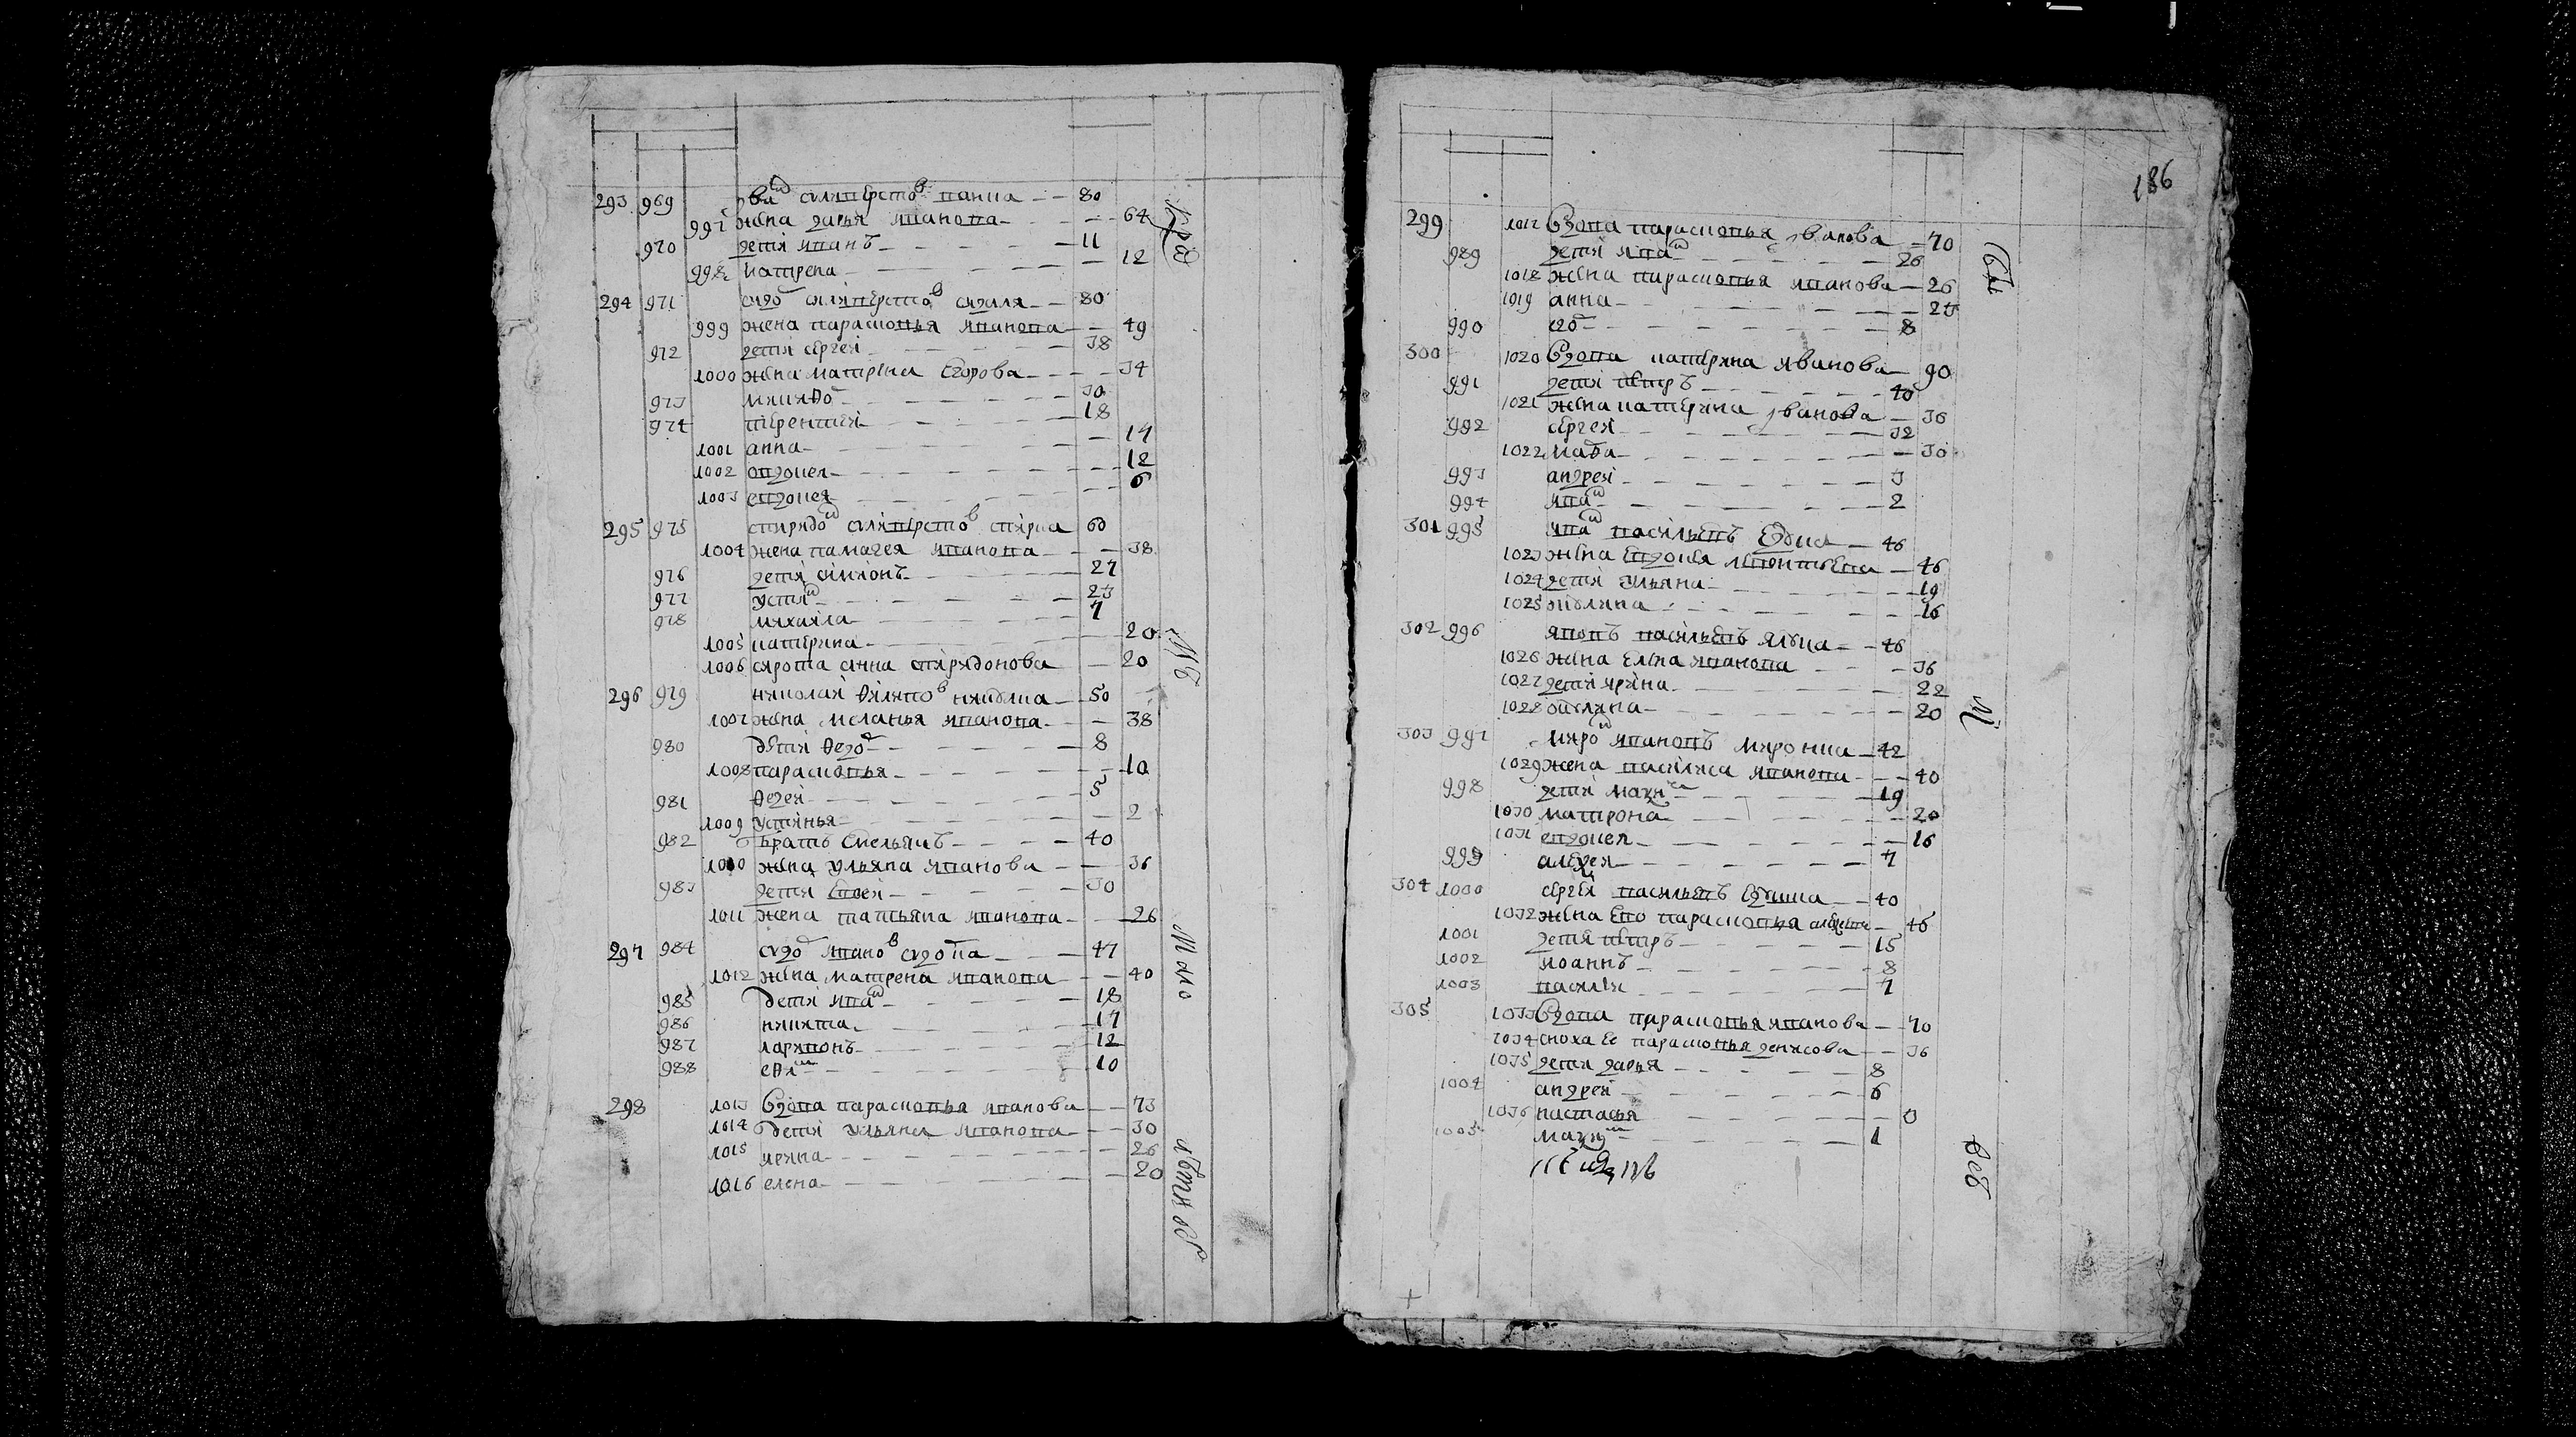 293 969 Іваⁿ силиверстоᵛ ванца — 80
997 жена дарья иванова — 64
970 дети иванъ — 11
998 катрена — 12
294 971 сидоʳ силиверстоᵛ сидиля — 80
999 жена парасковья иванова — 49
972 дети сергеи — 38
1000 жена матрена Егорова — 34
973 никифоʳ — 30
974 терентеи — 18
1001 анна — 14
1002 овдокея — 12
1003 евдокея — 6
295 975 спиридоⁿ силиверстоᵛ спирка 60
1004 жена палагея иванова — 38
976 дети симионъ — 27
977 устиⁿ — 23
978 михаила — 7
1005 катерина — 20
1006 сирота анна спиридонова — 20
296 979 николаи филипоᵛ — 50
1007 жена меланья иванова — 38
980 дети федоʳ — 8
1008 парасковья — 10
981 федеи — 5
1009 устинья — 2
982 братъ Емельянъ — 40
1010 жена ульяна иванова — 36
983 дети — 30
1011 жена татьяна иванова — 26
297 984 сидоʳ иваноᵛ — 47
1012 жена матрена иванова — 40
985 дети иваⁿ — 18
986 никита — 17
987 ларивонъ — 12
988 ефиᵐ — 10
298 1013 вдова парасковья иванова — 73
1014 дети ульяна иванова — 30
1015 ирина — 26
1016 елена — 20
186
299 1017 вдова парасковья Іванова — 70
989 дети иваⁿ — 26
1018 жена парасковья иванова — 26
1019 анна — 25
990 — 8
300 1020 вдова катерина иванова — 90
991 дети петръ — 40
1021 жена катерина Іванова — 36
992 сергеи — 32
1022 — 30
993 андреи — 3
994 иваⁿ — 2
301 995 иваⁿ васильевъ — 46
1023 жена Евдокея — 46
1024 дети ульяна — 19
1025 — 16
302 996 васильевъ — 46
1026 жена Елена иванова — 36
1027 дети ирина — 22
1028 — 20
303 997 мироⁿ ивановъ миронка — 42
1029 жена василиса иванова — 40
998 дети — 19
1030 матрона — 20
1031 евдокея — 16
999 — 7
304 1000 сергеи васильевъ — 40
1032 жена Ево парасковья — 46
1001 дети петръ — 15
1002 иоаннъ — 8
1003 василеи — 7
305 1033 вдова парасковья иванова — 70
1034 сноха Ее парасковья денисова — 36
1035 дети дарья — 8
1004 андреи — 6
1036 настасья — 0
1005 — 1